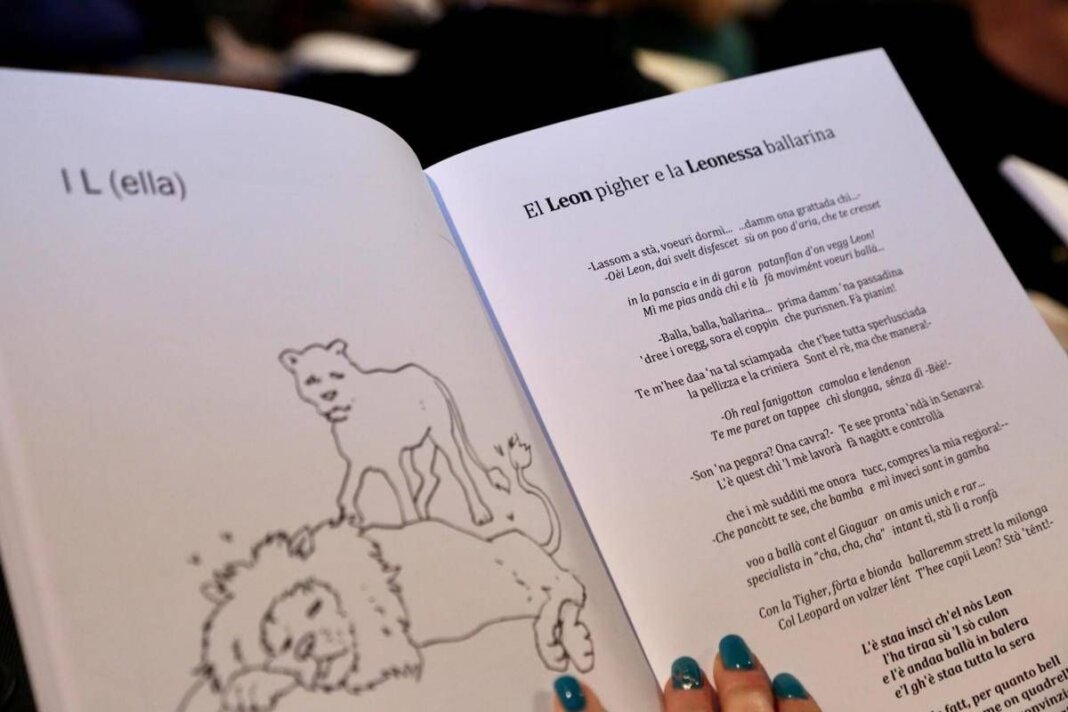 I L (ella)
El Leon pigher e la Leonessa ballarina
-Lassom a stà, voeuri dormì... ...damm ona grattada chi...-
-Oèi Leon, dai svelt disfescet sù on poo d'aria, che te cresset
in la panscia e in di garon patanflan d'on vegg Leon!
Mì me pias andà chi e là fà movimént voeuri ballà...
-Balla, balla, ballarina... prima damm 'na passadina
'dree i oregg, sora el coppin che purisnen. Fà pianin!
Te m'hee daa 'na tal sciampada che t'hee tutta sperlusciada
la pellizza e la criniera Sont el rè, ma che manera!-
-Oh real fanigotton camolaa e lendenon
Te me paret on tappee chì slongaa, sénza dì -Bèè!-
-Son 'na pegora? Ona cavra?- Te see pronta 'ndà in Senavra!
L'è quest chì 'l mè lavorà fà nagòtt e controllà
che i mè sudditi me onora tucc, compres la mia regiora!--
-Che pancòtt te see, che bamba e mi inveci sont in gamba
voo a ballà cont el Giaguar on amis unich e rar...
specialista in "cha, cha, cha" intant tì, stà lì a ronfà
Con la Tigher, fòrta e bionda ballaremm strett la milonga
Col Leopard on valzer lént T'hee capii Leon? Stà 'tént!-
L'è staa insci ch'el nòs Leon
l'ha tiraa sù 'l sò culon
e l'è andaa ballà in balera
e'l gh'è staa tutta la sera
fatt, per quanto bell
me on quadrell